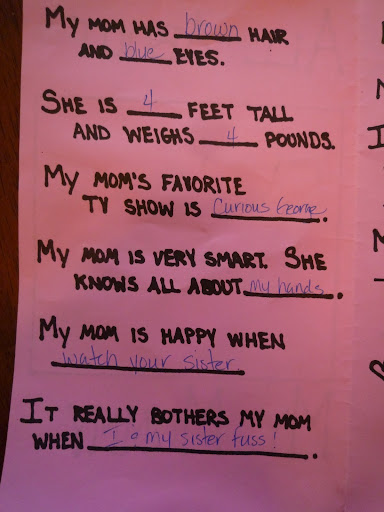 My mom has brown hair
and blue eyes.
She is 4 feet tall
and weighs 4 pounds.
My mom's favorite
TV show is Curious George.
My mom is very smart. She
knows all about my hands.
My mom is happy when
watch your sister.
It really bothers my mom
when I & my sister fuss!.